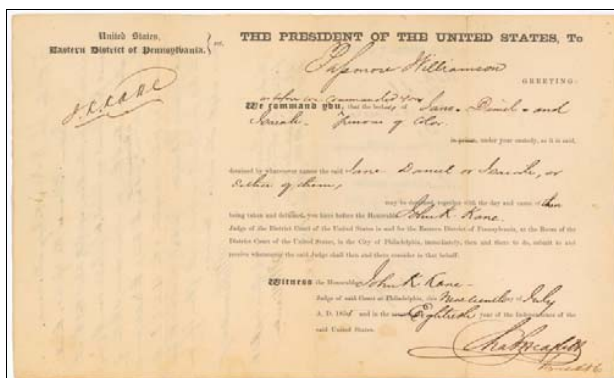 United States,
Eastern District of Pennsylvania.
THE PRESIDENT OF THE UNITED STATES, To
Passmore Williamson
GREETING:
J.K. KANE
as before we commanded you
We command you, that the bodies of Jane - Daniel - and
Isaiah - Persons of Color
in prison, under your custody, as it is said,
detained by whatsoever names the said Jane Daniel or Isaiah, or
Either of them,
may be detained, together with the day and cause of
being taken and detained, you have before the Honorable John K Kane.
Judge of the District Court of the United States in and for the Eastern District of Pennsylvania, at the Room of the
District Court of the United States, in the City of Philadelphia, immediately, then and there to do, submit to and
receive whatsoever the said Judge shall then and there consider in that behalf.
Witness the Honorable John K Kane
Judge of said Court at Philadelphia, this Nineteenth of July
A. D. 185 and in the Eightieth year of the Independence of the
said United States.